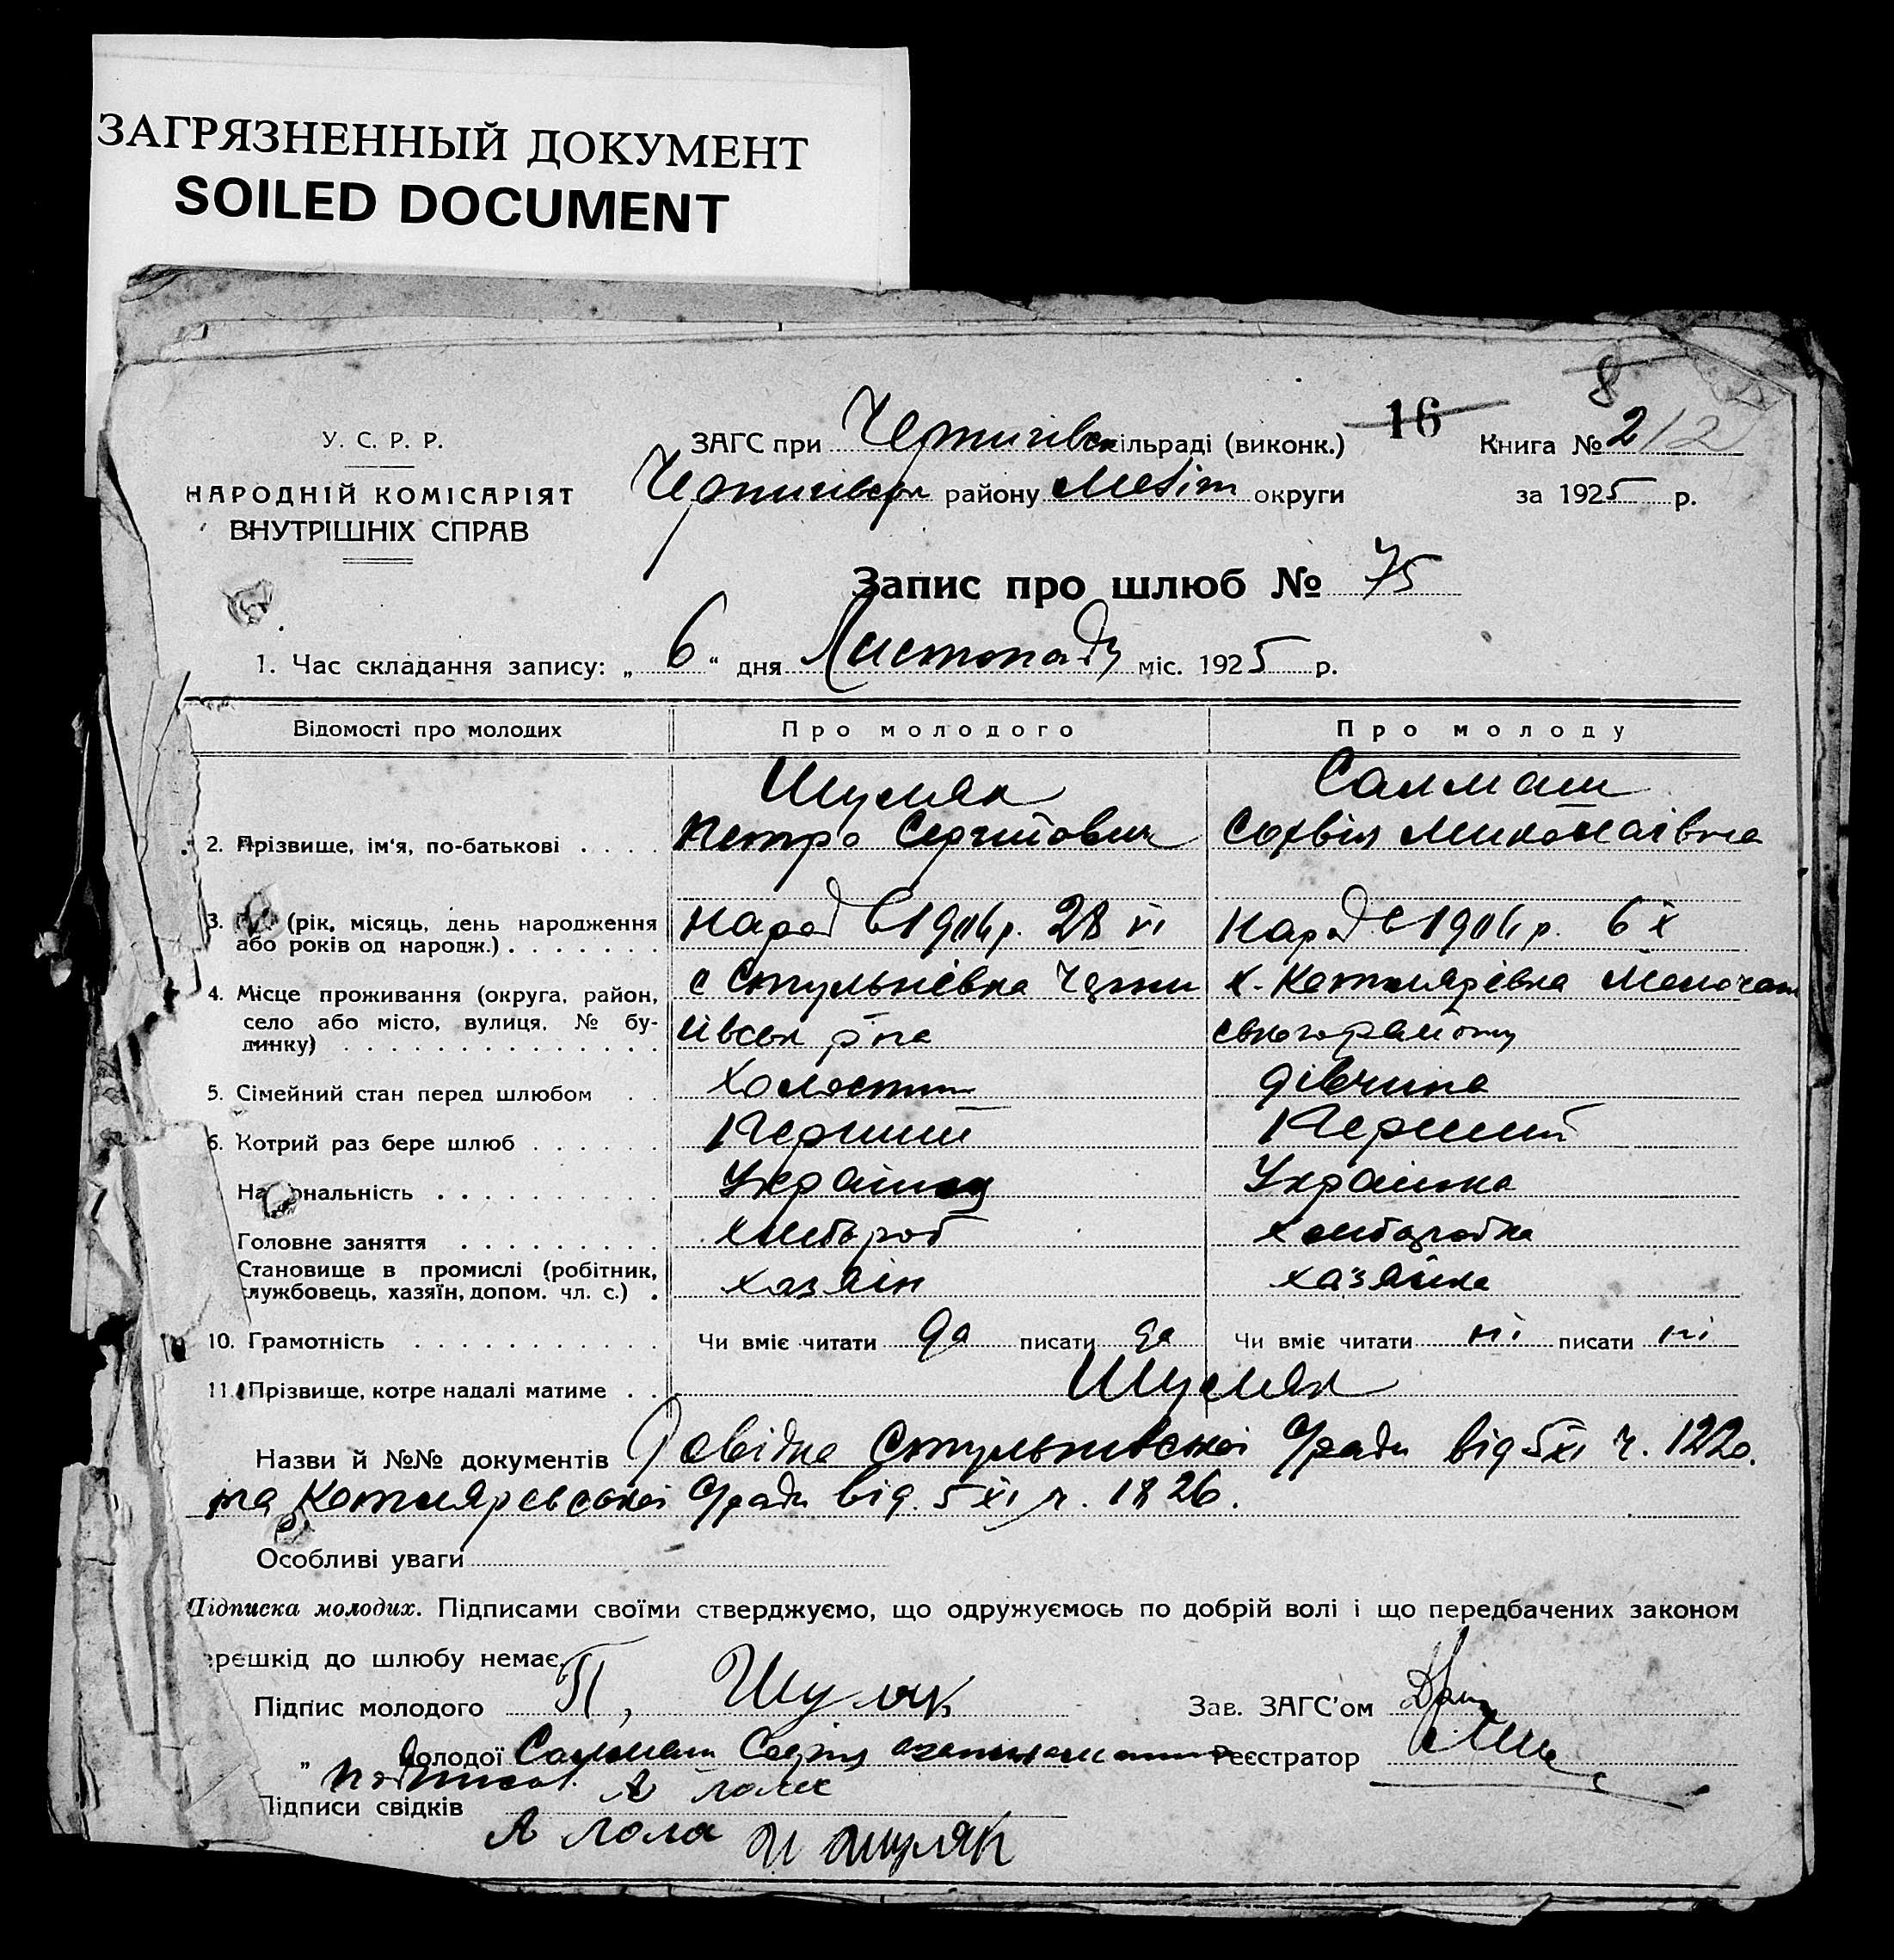 ЗАГРЯЗНЕННЫЙ ДОКУМЕНТ
SOILED DOCUMENT
8
16
У. С. Р. Р.
НАРОДНІЙ КОМІСАРІЯТ
ВНУТРІШНІХ СПРАВ
ЗАГС при Чернигівск ільраді (виконк.)
Книга № 2/2
Чернигівськ району Меліт округи
за 1925 р.
Запис про шлюб № 75
1. Час складання запису: „ 6 “ дня Листопаду міс. 1925 р.
Відомості про молодих Про молодого Про молоду
Шуляк Салмаш
2. Прізвище, ім'я, по-батькові . . . . Петро Сергійович Софвія Миколаівна
3. (рік, місяць, день народження
або років од народж.) . . . . . . . Народ в 1904 р. 28 VI Народ в 1904 р. 6 X
4. Місце проживання (округа, район, с Стульнівка Черни х. Котлярівка Молочан
село або місто, вулиця, № бу-
динку) . . . . . . . . . . . . . . . гівськ р на ського району
5. Сімейний стан перед шлюбом . . Холостий дівчина
6. Котрий раз бере шлюб . . . . . . Перший Перший
На ональність . . . . . . . . . . Українец Українка
Головне заняття . . . . . . . . . хлібороб хліборобка
Становище в промислі (робітник,
лужбовець, хазяїн, допом. чл. с.) . хазяін хазяйка
10. Грамотність . . . . . . . . . . . Чи вміє читати да писати да Чи вміє читати ні писати ні
11. Прізвище, котре надалі матиме . . Шуляк
Назви й №№ документів Довідка Стульнівської с/ради від 5 XI ч. 1220.
та Котляревської с/ради від. 5 XI ч. 1826.
Особливі уваги
Підписка молодих. Підписами своїми стверджуємо, що одружуємось по добрій волі і що передбачених законом
ерешкід до шлюбу немає.
Підпис молодого П, Шуляк Зав. ЗАГС'ом
„ молодої Салмаш Софія Реєстратор
Підписи свідків
И Шуляк